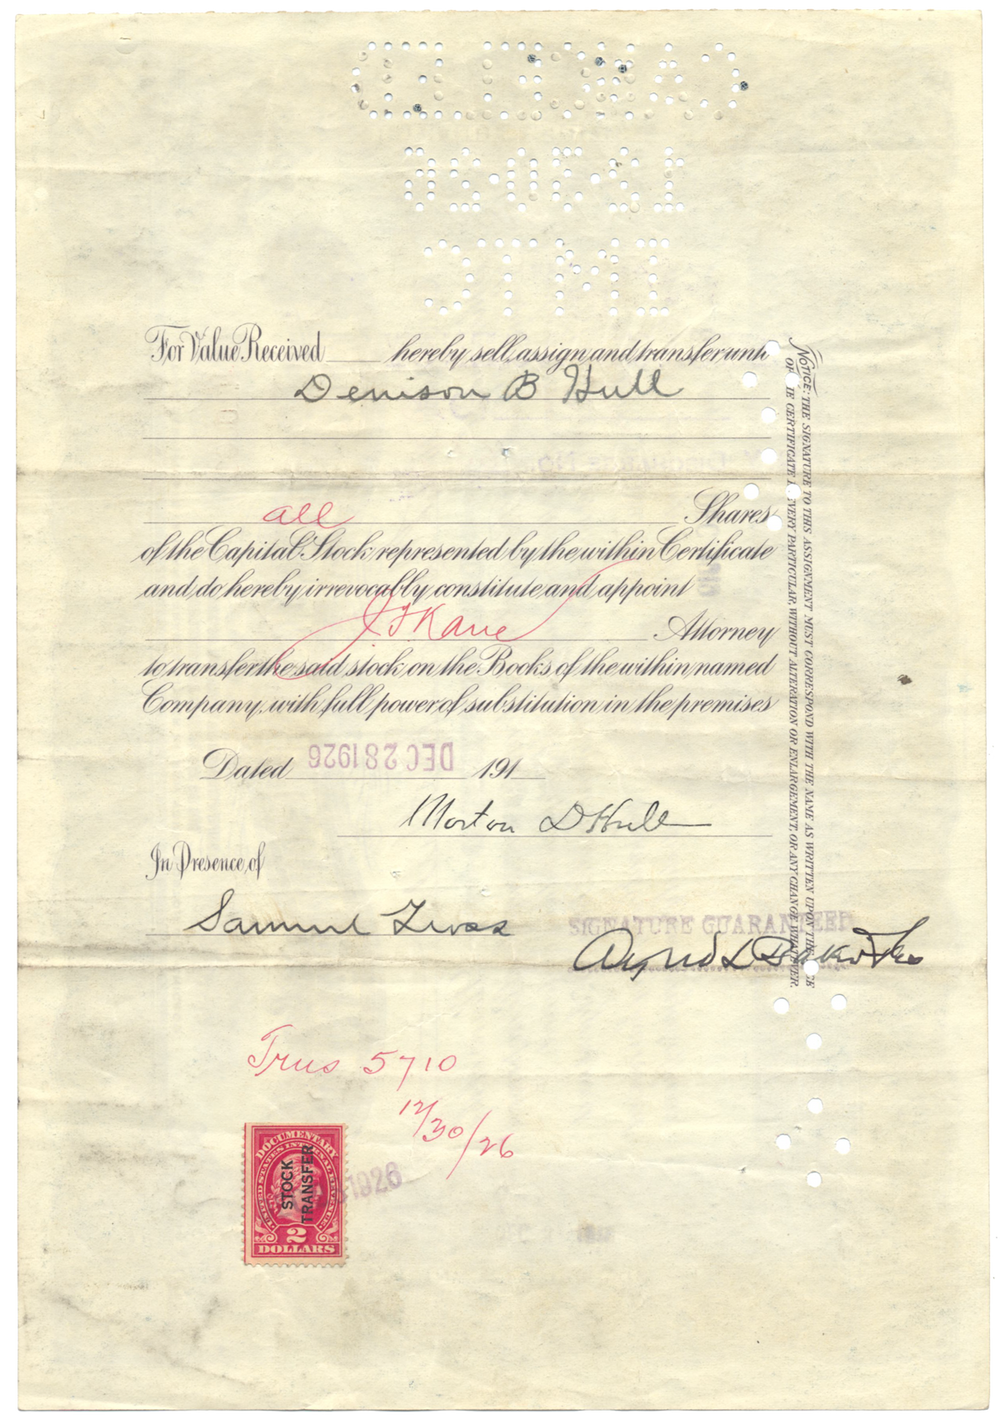 CANCELLED
12·30·26
IMTC
For Value Received ____ hereby sell, assign and transfer unto
Denison B Hull
all Shares
of the Capital Stock represented by the within Certificate
and do hereby irrevocably constitute and appoint
J F Kane Attorney
to transfer the said stock on the Books of the within named
Company, with full power of substitution in the premises
Dated DEC 28 1926 191
Morton D Hull
In Presence of
Samuel
SIGNATURE GUARANTEED
Alfred L Baker & Co
NOTICE: THE SIGNATURE TO THIS ASSIGNMENT MUST CORRESPOND WITH THE NAME AS WRITTEN UPON THE
OF THE CERTIFICATE EVERY PARTICULAR, WITHOUT ALTERATION OR ENLARGEMENT, OR ANY CHANGE WHATEVER.
Trus 5710
12/30/26
1926
DOCUMENTARY
UNITED STATES INTERNAL REVENUE
STOCK
TRANSFER
2
DOLLARS